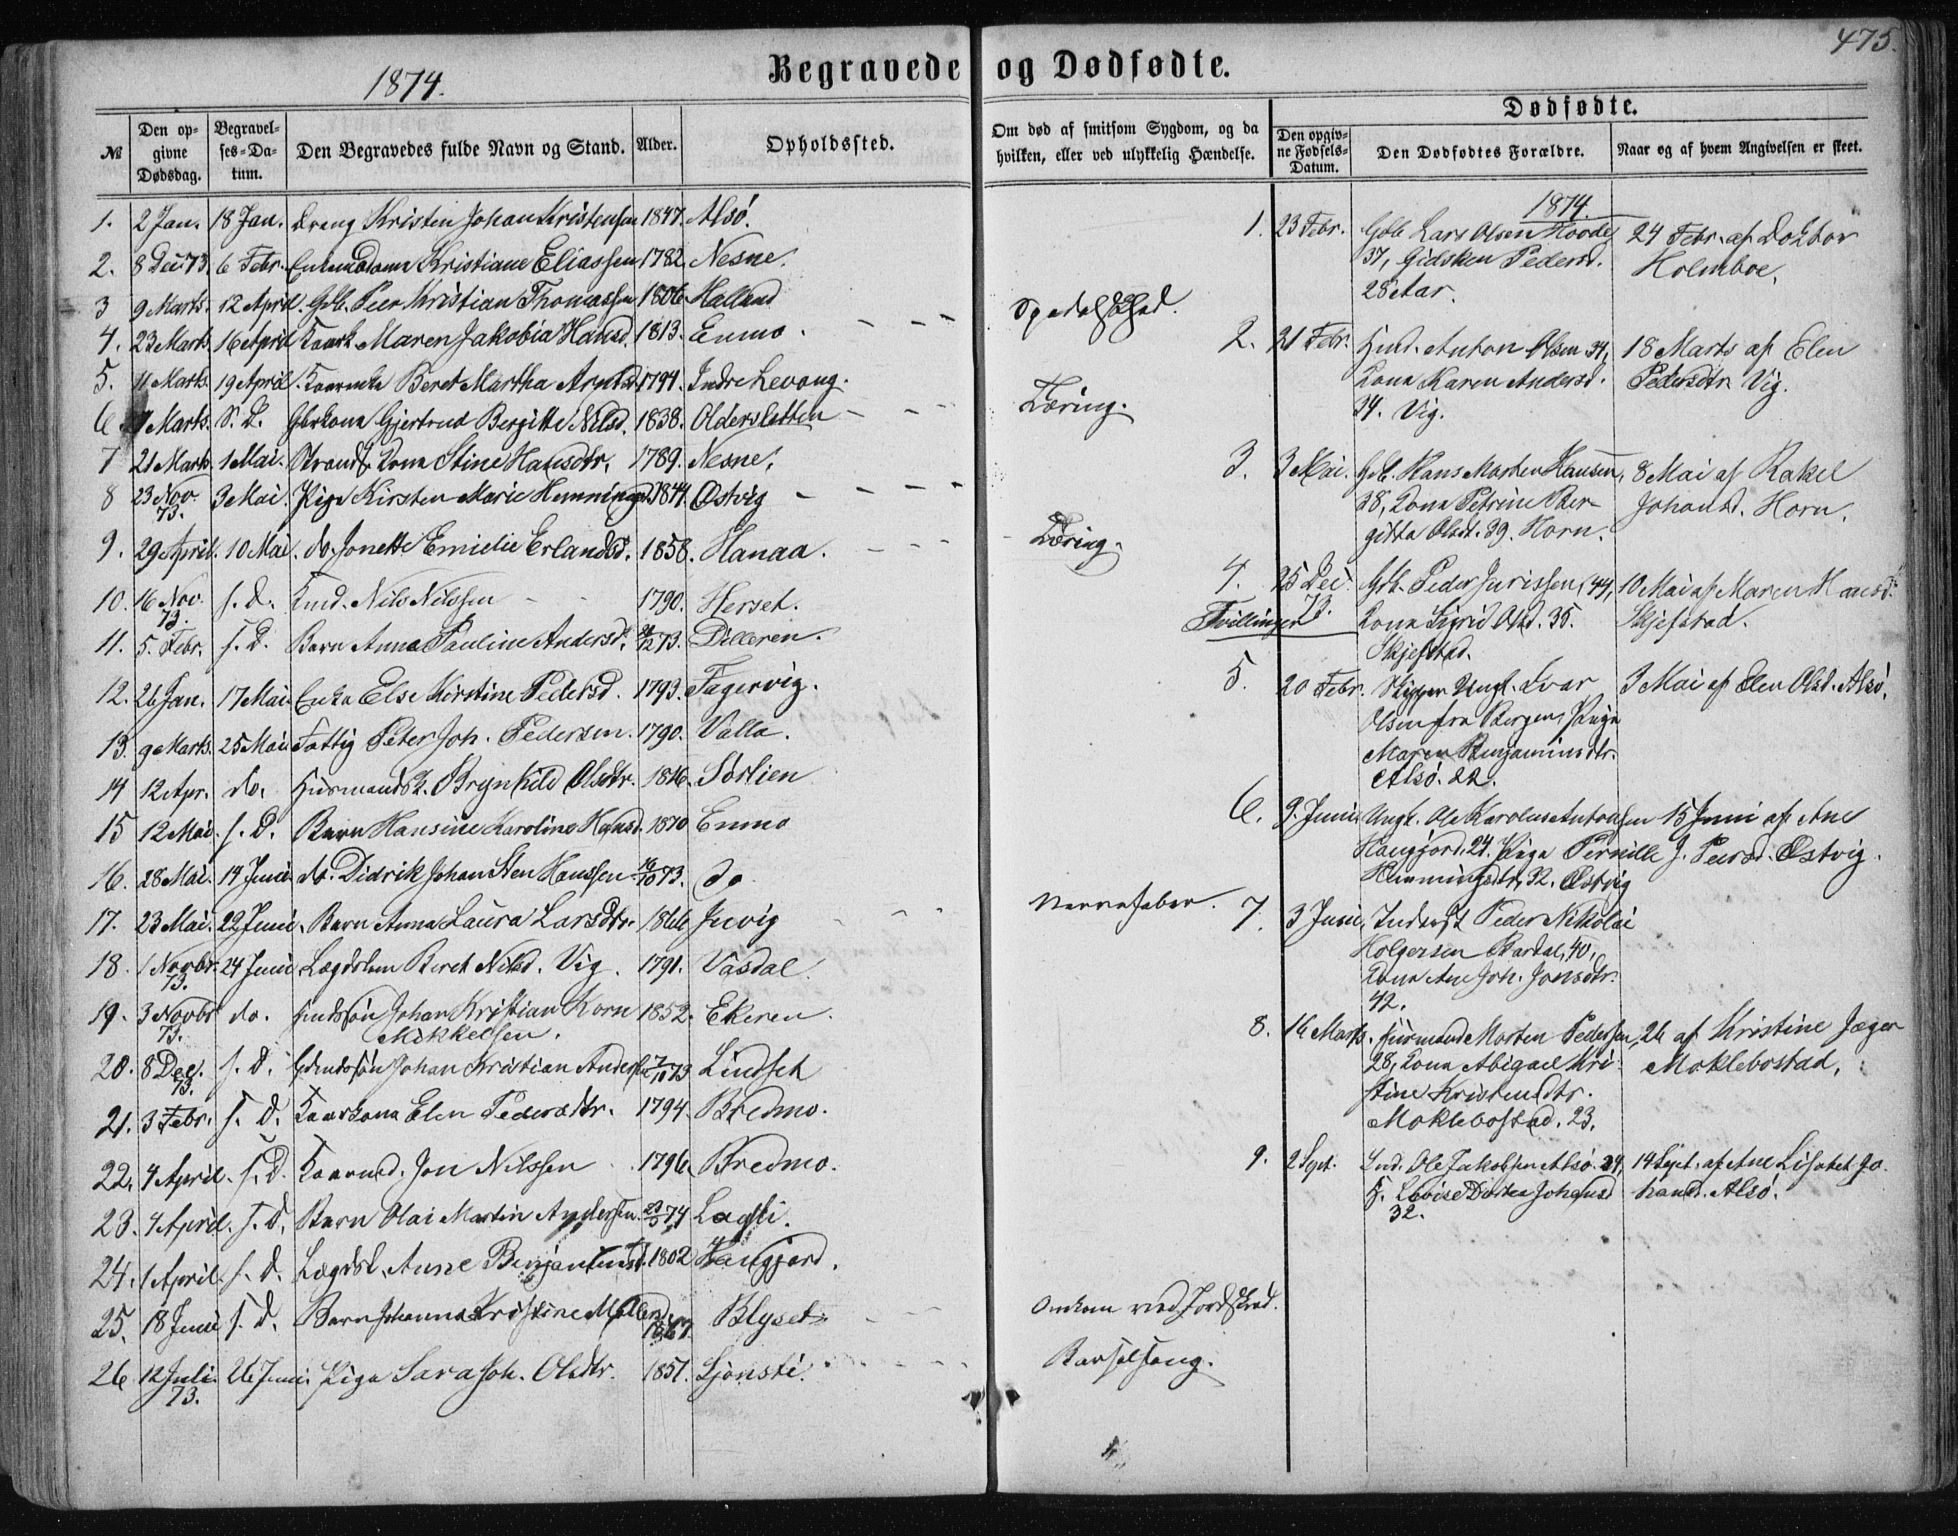 475.
1874.
Begravede og Dødfødte.
№ Den opgivne Dødsdag. Begravelses-Datum. Den Begravedes fulde Navn og Stand. Alder. Opholdssted.
1. 2 Jan. 18 Jan. Dreng Kristen Johan Kristensen 1847. Alsø.
2. 8 Dec. 73. 6 Febr. Enkemadame Kristiane Eliassen 1782. Nesne.
3 9 Marts. 12 April. Gdb. Peer Kristian Thomassen 1806 Halland
4. 23 Marts. 16 April Kaark. Maren Jakobia Hansd. 1813. Enmo.
5. 11 Marts. 19 April. Kaarenke Beret Martha Arntsd. 1791. Indre Levang.
6 7 Marts. S. D. Gbrkona Gjertrud Bergitte Nilsd. 1838. Oldersletten
7 21 Marts. 1 Mai. Strands. Kona Stine Hansdtr. 1789. Nesne.
8 23 Nov. 73. 3 Mai. Pige Kirsten Marie Hemmingsd. 1844. Østvig
9. 29 April. 10 Mai. do. Jonette Emielie Erlandsd. 1858. Hanaa.
10. 16 Nov. 73. s. D. Inds. Nils Nilssen 1790. Herset.
11. 5. Febr. s. D. Barn Anna Pauline Andersd. /12 73. Dilleren.
12. 26 Jan. 17 Mai Enka Else Kirstine Pedersd. 1793. Fagervig.
13. 9 Marts. 25 Mai Fattig Peter Joh. Pedersen 1790. Valla.
14 12 Apr. do. Husmandsk. Brynhild Olsdtr. 1816. Sørlien
15 12 Mai. s. D. Barn Hansine Karoline Hansd. 1870 Enmo
16. 28 Mai. 14 Juni do. Didrik Johan Sten Hanssen 16/10 73. do
17. 23 Mai. 22 Juni. Barn Anna Laura Larsdtr. 1866 Juvig
18. 1 Novbr. 73. 24 Juni Lægdslem Beret Nilsd. Vig. 1791. Vasdal.
19. 3 Novbr 73. do. Indssøn Johan Kristian Korn Mikkelsen. 1852. Ekeren.
20. 8 Dec. 73. s. D. Johan Kristian Anders. 7/10 73 Lindset
21. 3 Febr. s. D. Kaarkona Elen Pedersdtr. 1794. Bredmo.
22. 4 April. s. D. Kaarmd. Jon Nilssen 1796. Bredmo.
23. 4 April. s. D. Barn Olai Martin Andersen. 74 Lagli.
24. 1 April. s. D. Lægdsl. Anne Benjaminsd. 1802 Haugjord.
25. 18 Juni s. D. Barn Johanna Kristine 1867. Blyset
26 12 Juli. 73. 26 Juni. Pige Sara Joh. Olsdtr. 1851. Sjonsti.
Om død af smitsom Sygdom, og da hvilken, eller ved ulykkelig Hændelse.
Spedalskhed.
Tæring.
Tæring.
Nervefeber.
Omkom ved Jordskred.
Barselseng.
Dødfødte.
Den opgivne Fødsels-Datum. Den Dødfødtes Forældre. Naar og af hvem Angivelsen er skeet.
1874.
1. 23 Febr. Gdb Lars Olsen 24 Febr. af Doktor
37, Gidsken Pedersd. Holmboe.
28 Aar.
2. 21 Febr. Husd. Anton Olsen 34, 18 Marts af Elen
Kona Karen Andersd. Pedersdtr Vig.
34. Vig.
3. 3 Mai. Gdb. Hans Morten Hansen, 8 Mai af Rakel
38, Kona Petrine Ber- Johansd. Horn.
gitta Olsd. 39. Horn.
4. 25 Dec 73. Peder Jarissen, 44, 10 Mai af Maren Hansd.
Tvillinger Kona Sigrid Olsd. 35. Skjefstad.
Skjefstad.
5. 20 Febr. Skipper Ungk. Ivar 3 Mai af Elen Olsd. Alsø.
Olsen fra Bergen, Pige
Maren Benjaminsdtr.
Alsø. 22.
6. 9. Juni Ungk. Ole Karolius Antonsen 15 Juni af Ane
Haugjord. 24. Pige Pernille J. Peersd. Østvig.
Hemmingsdtr, 32. Østvig
7. 3 Juni. Inderst Peder Nikolai
Holgersen Bardal, 40,
Kona Ane Joh. Jonsdtr.
42.
8. 16 Marts. Husmand Morten Pedersen, 26 af Kristine Jæger
28, Kona Abigael Kri- Moklebostad.
stine Kristensdtr.
Moklebostad. 23.
9. 2 Sept. Ind. Ole Jakobsen Alsø. 34, 14 Sept. af Ane Lisabet Jo-
K. Lovise Dortea Johansd hansd. Alsø.
32.